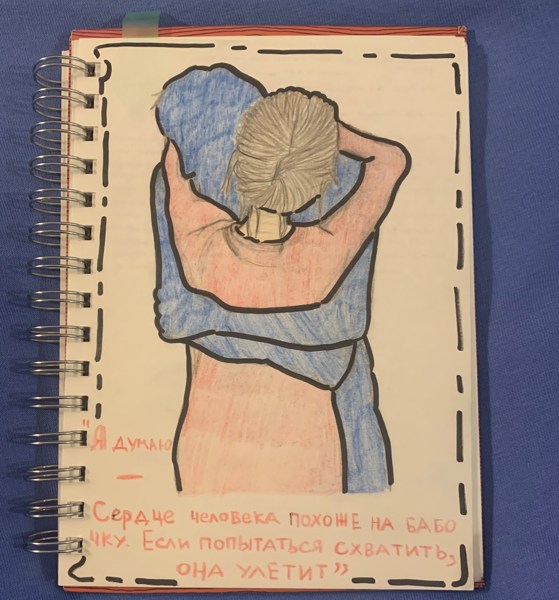 "Я думаю
—
Сердце человека похоже на бабо
чку. Если попытаться схватить,
она улетит”